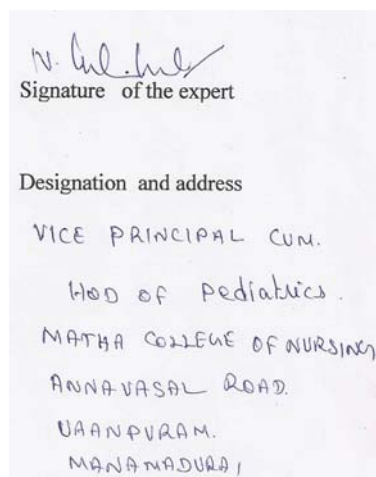 N.
Signature of the expert
Designation and address
VICE PRINCIPAL CUM.
HOD OF Pediatrics.
MATHA COLLEGE OF NURSING
ANNAVASAL ROAD.
VAANPURAM.
MANAMADURAI